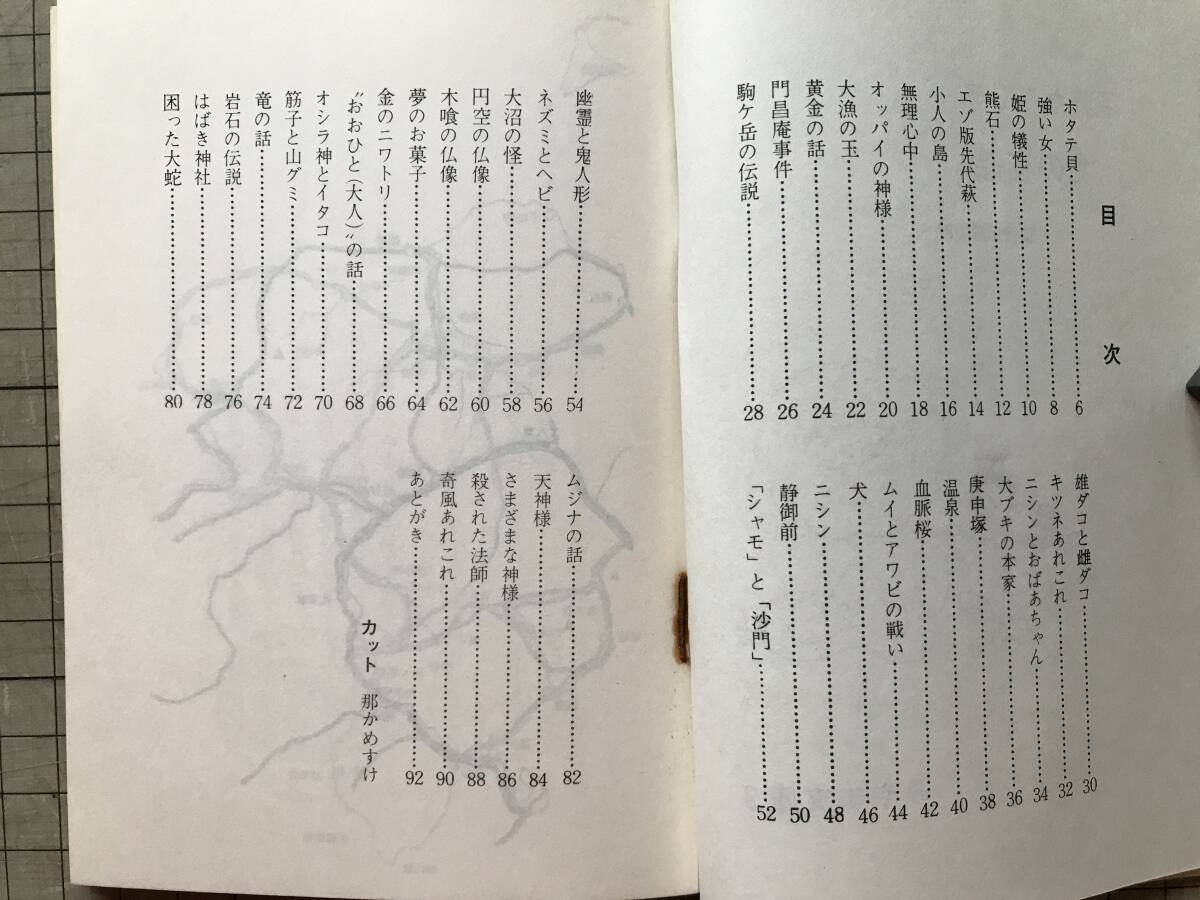 目次
ホタテ貝 6
強い女 8
姫の犠性 10
熊石 12
エゾ版先代萩 14
小人の島 16
無理心中 18
オッパイの神様 20
大漁の玉 22
黄金の話 24
門昌庵事件 26
駒ケ岳の伝説 28
雄ダコと雌ダコ 30
キツネあれこれ 32
ニシンとおばあちゃん 34
大ブキの本家 36
庚申塚 38
温泉 40
血脈桜 42
ムイとアワビの戦い 44
犬 46
ニシン 48
静御前 50
「シャモ」と「沙門」 52
幽霊と鬼人形 54
ネズミとヘビ 56
大沼の怪 58
円空の仏像 60
木喰の仏像 62
夢のお菓子 64
金のニワトリ 66
“おおひと(大人)”の話 68
オシラ神とイタコ 70
筋子と山グミ 72
竜の話 74
岩石の伝説 76
はばき神社 78
困った大蛇 80
ムジナの話 82
天神様 84
さまざまな神様 86
殺された法師 88
奇風あれこれ 90
あとがき 92
カット 那かめすけ